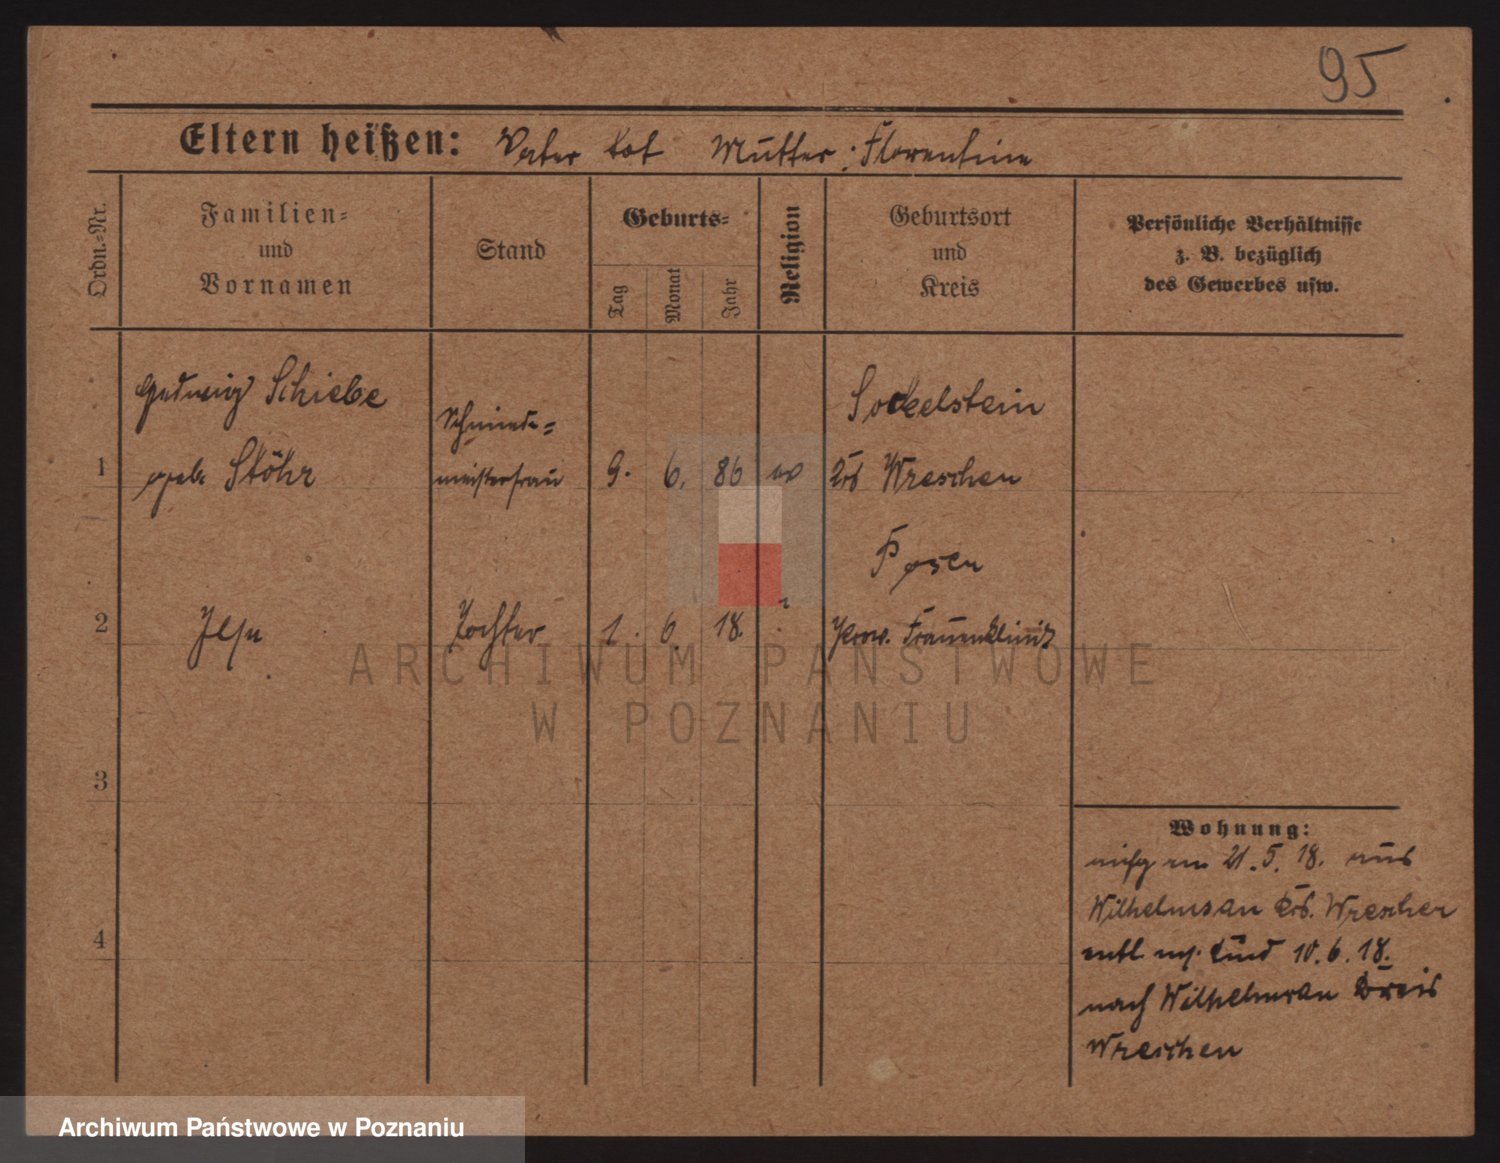 95
Eltern heißen: Vater tot Mutter: Florentine
Ordn.-Nr.
Familien-
und
Vornamen
Stand
Geburts-
Tag
Monat
Jahr
Religion
Geburtsort
und
Kreis
Persönliche Verhältnisse
z. B. bezüglich
des Gewerbes usw.
Hedwig Schiebe
Schmiede-
Sockelstein
1 geb. Stöhr meisterfrau 9. 6. 86 ev Krs Wreschen
Posen
2 Ilse Tochter 1. 6. 18. Prov. Frauenklinik
3
4
Wohnung:
aufg am 21.5.18. aus
Wilhelmsau Krs. Wreschen
entl. m. Kind 10.6.18.
nach Wilhelmsau Kreis
Wreschen
ARCHIWUM PAŃSTWOWE
W POZNANIU
Archiwum Państwowe w Poznaniu